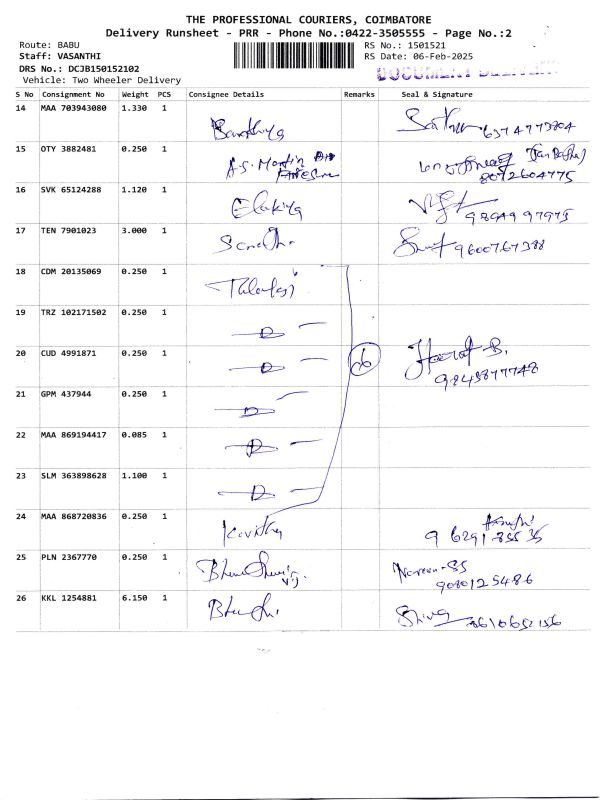 THE PROFESSIONAL COURIERS, COIMBATORE
Delivery Runsheet - PRR - Phone No.:0422-3505555 - Page No.:2
Route: BABU
RS No.: 1501521
Staff: VASANTHI
RS Date: 06-Feb-2025
DRS No.: DCJB150152102
Vehicle: Two Wheeler Delivery
S No Consignment No Weight PCS Consignee Details Remarks Seal & Signature
14 MAA 703943080 1.330 1
6374773804
15 OTY 3882481 0.250 1 A.S. Martin
8072604775
16 SVK 65124288 1.120 1 Elakiya
9894997975
17 TEN 7901023 3.000 1
9600767388
18 CDM 20135069 0.250 1
19 TRZ 102171502 0.250 1
20 CUD 4991871 0.250 1 B.
9843877748
21 GPM 437944 0.250 1
22 MAA 869194417 0.085 1
23 SLM 363898628 1.100 1
24 MAA 868720836 0.250 1 Kavitha
25 PLN 2367770 0.250 1 Naveen-SS
9080125486
26 KKL 1254881 6.150 1 Shiva
8610652156